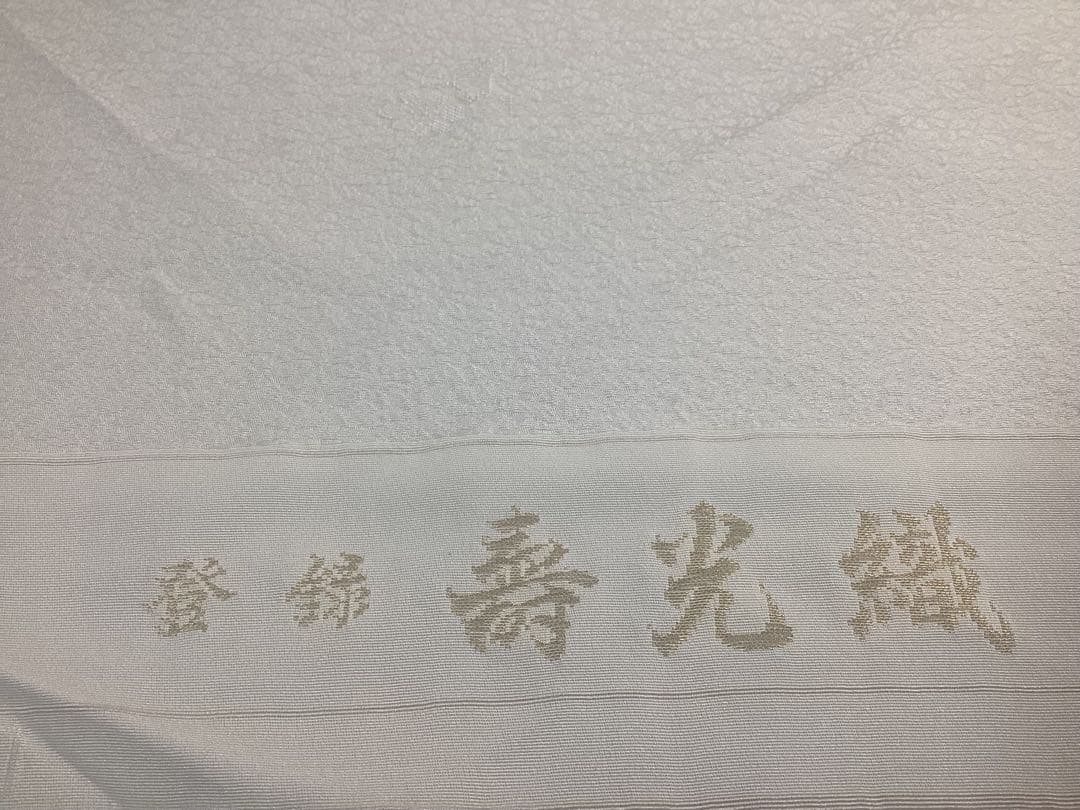 登録 壽光織